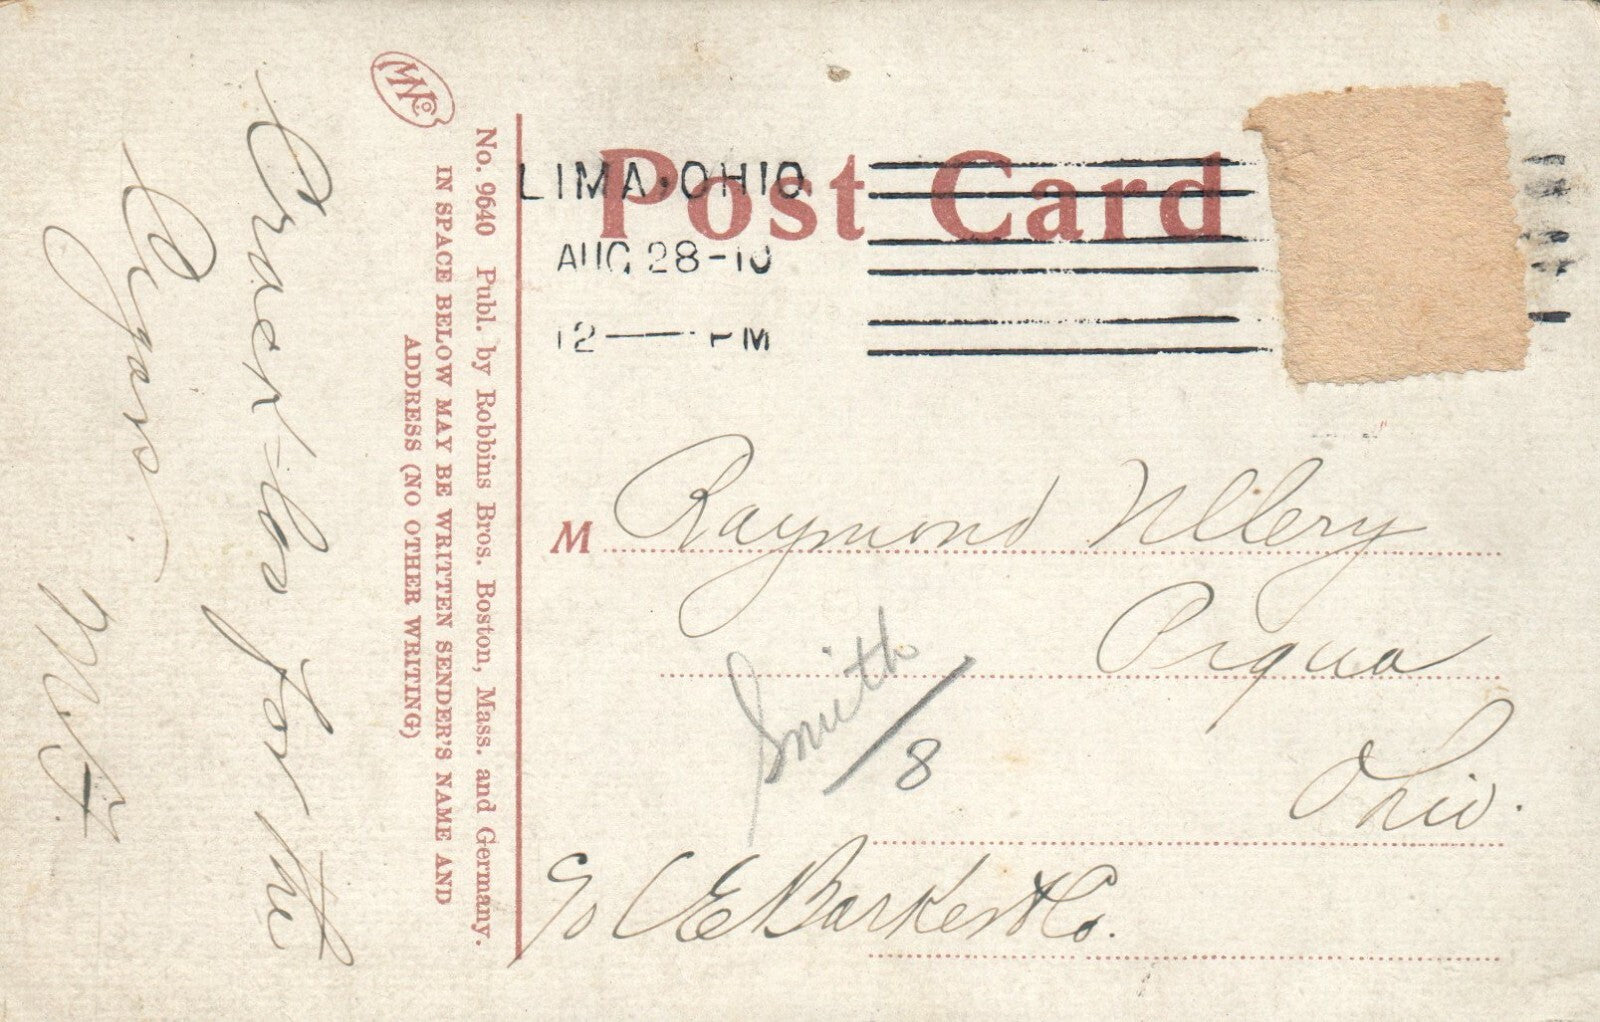 Post Card
LIMA·OHIO
AUG 28-10
12 — PM
No. 9640 Publ. by Robbins Bros. Boston, Mass. and Germany.
IN SPACE BELOW MAY BE WRITTEN SENDER'S NAME AND
ADDRESS (NO OTHER WRITING)
MWCo
for the
Cigars
M Raymond Ullery
Piqua
Ohio.
Smith
8
c/o C E Barker & Co.